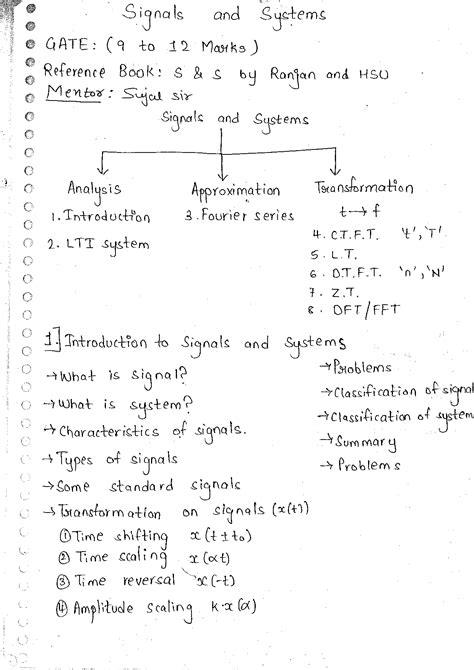 Signals and Systems
GATE: (9 to 12 Marks)
Reference Book: S & S by Ranjan and HSU
Mentor: Sujal sir
Signals and Systems
Analysis
1. Introduction
2. LTI system
Approximation
3. Fourier series
Transformation
t → f
4. C.T.F.T. 't', 'T'
5. L.T.
6. D.T.F.T. 'n', 'N'
7. Z.T.
8. DFT/FFT
1.] Introduction to Signals and Systems
→ What is signal?
→ What is system?
→ Characteristics of signals.
→ Types of signals
→ Some standard signals
→ Transformation on signals (x(t))
① Time shifting x(t±t₀)
② Time scaling x(αt)
③ Time reversal x(-t)
④ Amplitude scaling k·x(α)
→ Problems
→ Classification of signal
→ Classification of system
→ Summary
→ Problems